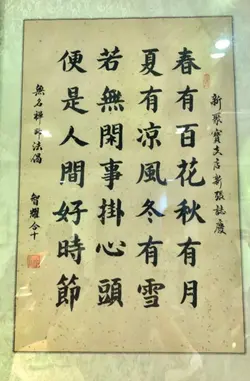 新聚寶支店新張誌慶
春有百花秋有月
夏有凉風冬有雪
若無閑事掛心頭
便是人間好時節
無名禪師法偈
智耀合十